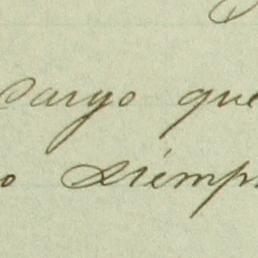 cargo que
o siemp